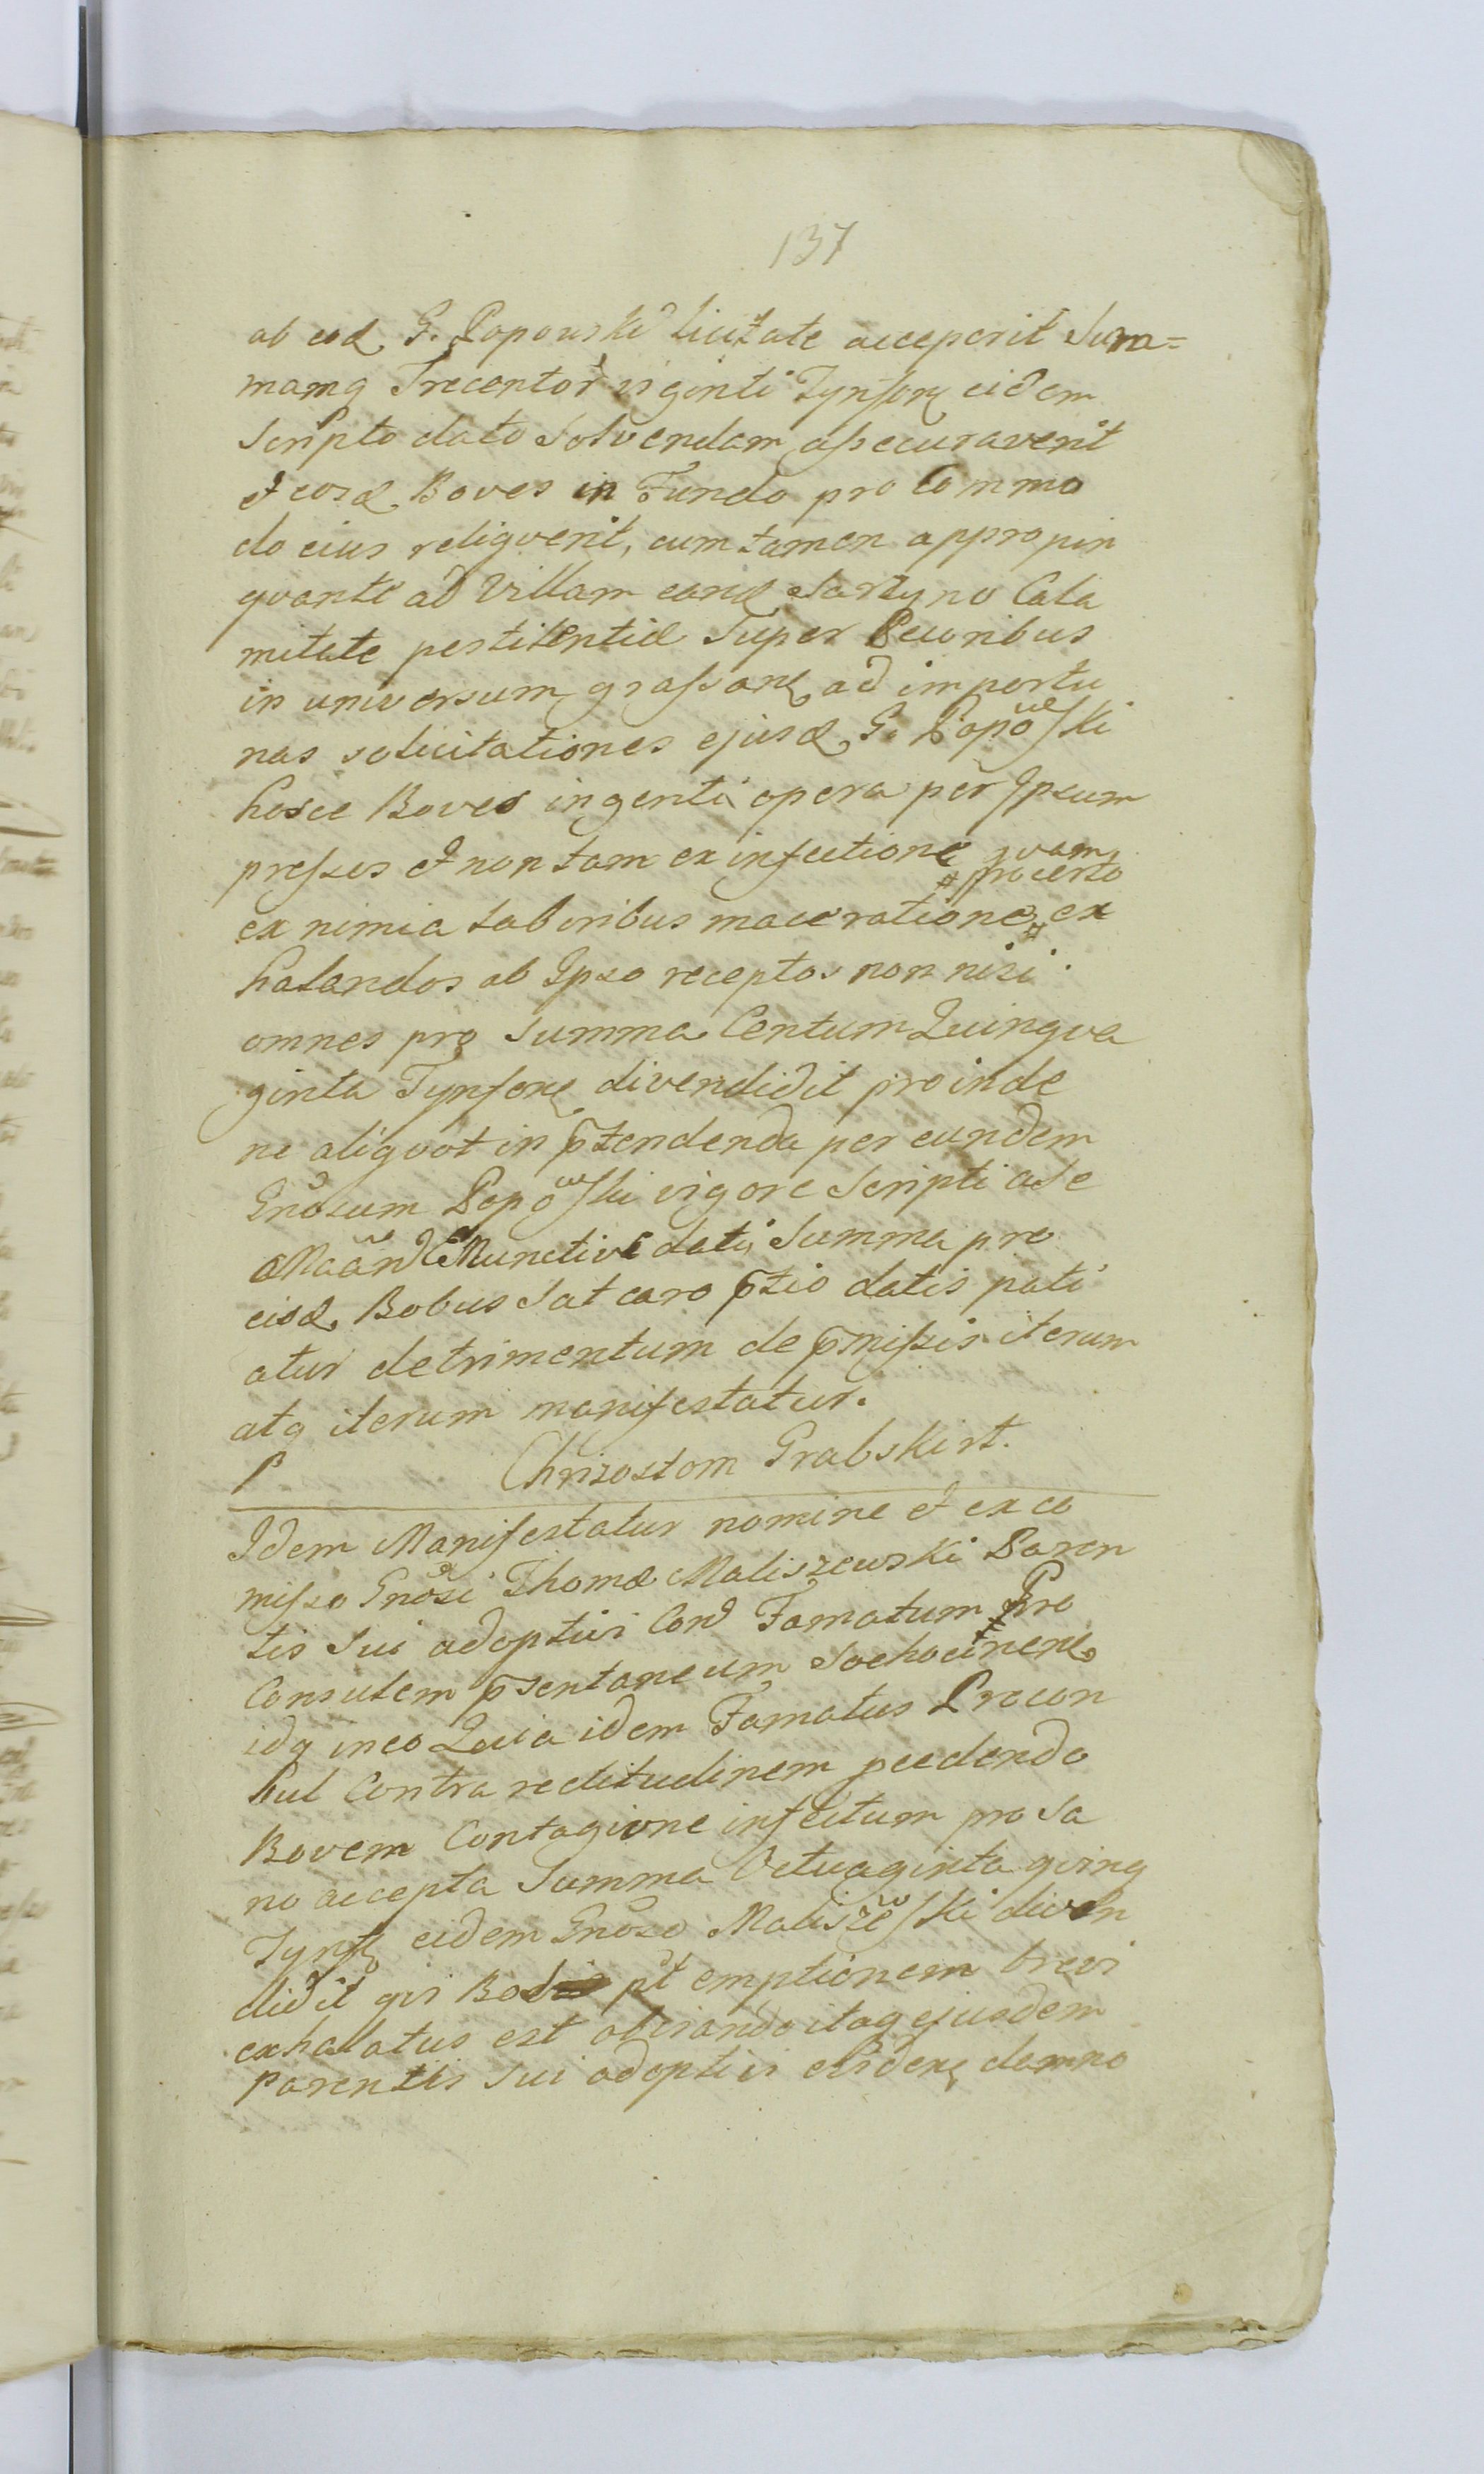 137
ab eod G. Popowski licitate acceperit Sum=
mamq Trecentor viginti Tynforz eidem
Scripto dato Solvendam assecuraverit
et eosd Boves in Fundo pro Commo
do eius reliqverit, cum tamen appropin
qvante ad Villam eand Sarzyno Cala
mitate pestilentiæ Super Pecoribus
in universum grassan ad importu
nas solicitationes ejusd G. Popowski
hosce Boves ingenti opera per Ipsum
pressos et non tam ex infectione qvam
ex nimia laboribus maceratione # pro certo ex
halandos ab Ipso receptos non nisi
omnes pro Summa Centum Quinqva
ginta Tynforz divendidit proinde
ne aliqvot in ptendenda per eundem
Gnosum Popowski vigore Scripti a Se
Mand Munctivi dati Summa pro
eisd Bobus Sat caro ptio datis pati
atur detrimentum de pmissis iterum
atq iterum manifestatur.
P Chrizostom Grabski mt.
Idem Manifestatur nomine et ex co
misso Gnosi Thomæ Maliszewski Paren
tis Sui adoptivi Con Famatum Pro
Consulem psentaneum Sochocinen
idq in eo Quia idem Famatus Procon
sul Contra rectitudinem pcedendo
Bovem Contagione infectum pro Sa
no accepta Summa Octuaginta qvinq
Tynf eidem Gnoso Maliszewski diven
didit qvi Bos pt emptionem brevi
exhalatus est obviando itaq ejusdem
Parentis Sui adoptivi eviden damno